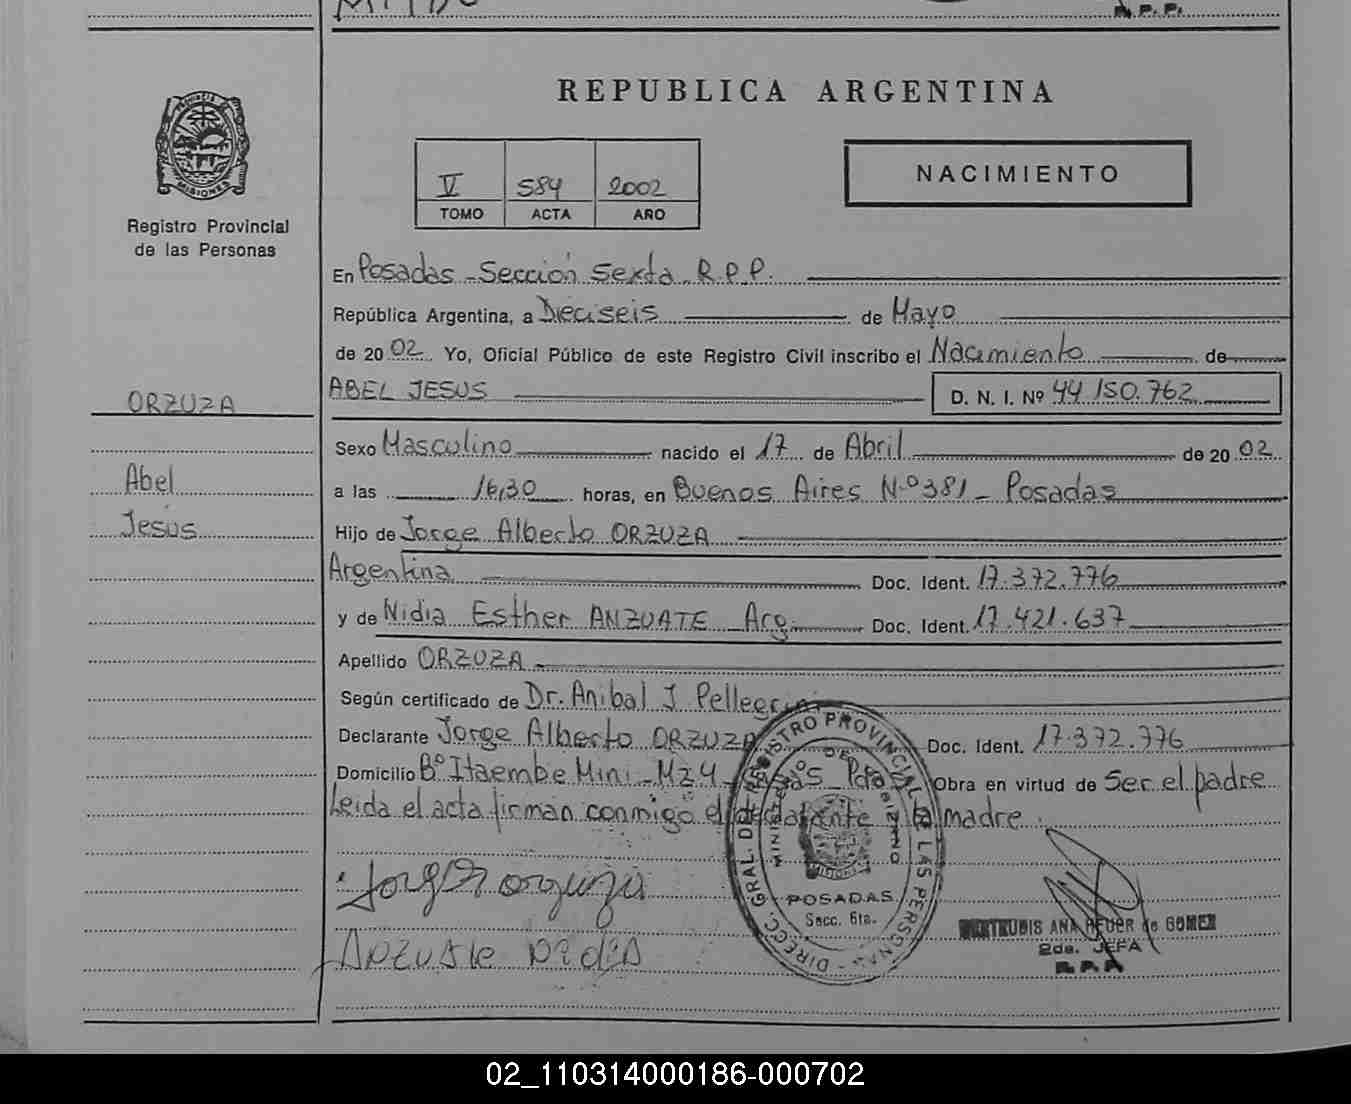 R. P. P.
PROVINCIA DE
MISIONES
Registro Provincial
de las Personas
ORZUZA
Abel
Jesús
REPUBLICA ARGENTINA
V 584 2002
TOMO ACTA AÑO
NACIMIENTO
En Posadas - Sección Sexta. R.P.P.
República Argentina, a Dieciseis de Mayo
de 2002 Yo, Oficial Público de este Registro Civil inscribo el Nacimiento de
ABEL JESUS D. N. I. Nº 44.150.762
Sexo Masculino nacido el 17 de Abril de 2002
a las 16,30 horas, en Buenos Aires Nº 381 - Posadas
Hijo de Jorge Alberto ORZUZA
Argentina Doc. Ident. 17.372.776
y de Nidia Esther ANZUATE Arg. Doc. Ident. 17.421.637
Apellido ORZUZA
Según certificado de Dr. Anibal J. Pellegrini
Declarante Jorge Alberto ORZUZA Doc. Ident. 17.372.776
Domicilio Bº Itaembe Mini - Mz 4 - Obra en virtud de Ser el padre
Leida el acta firman conmigo el declarante y la madre.
Anzuate Nidia
DIRECC. GRAL. DEL REGISTRO PROVINCIAL DE LAS PERSONAS
MINISTERIO DE GOBIERNO
MISIONES
POSADAS
Secc. 6ta.
GERTRUDIS ANA HEUER de GOMEZ
2da. JEFA
R. P. P.
02_110314000186-000702